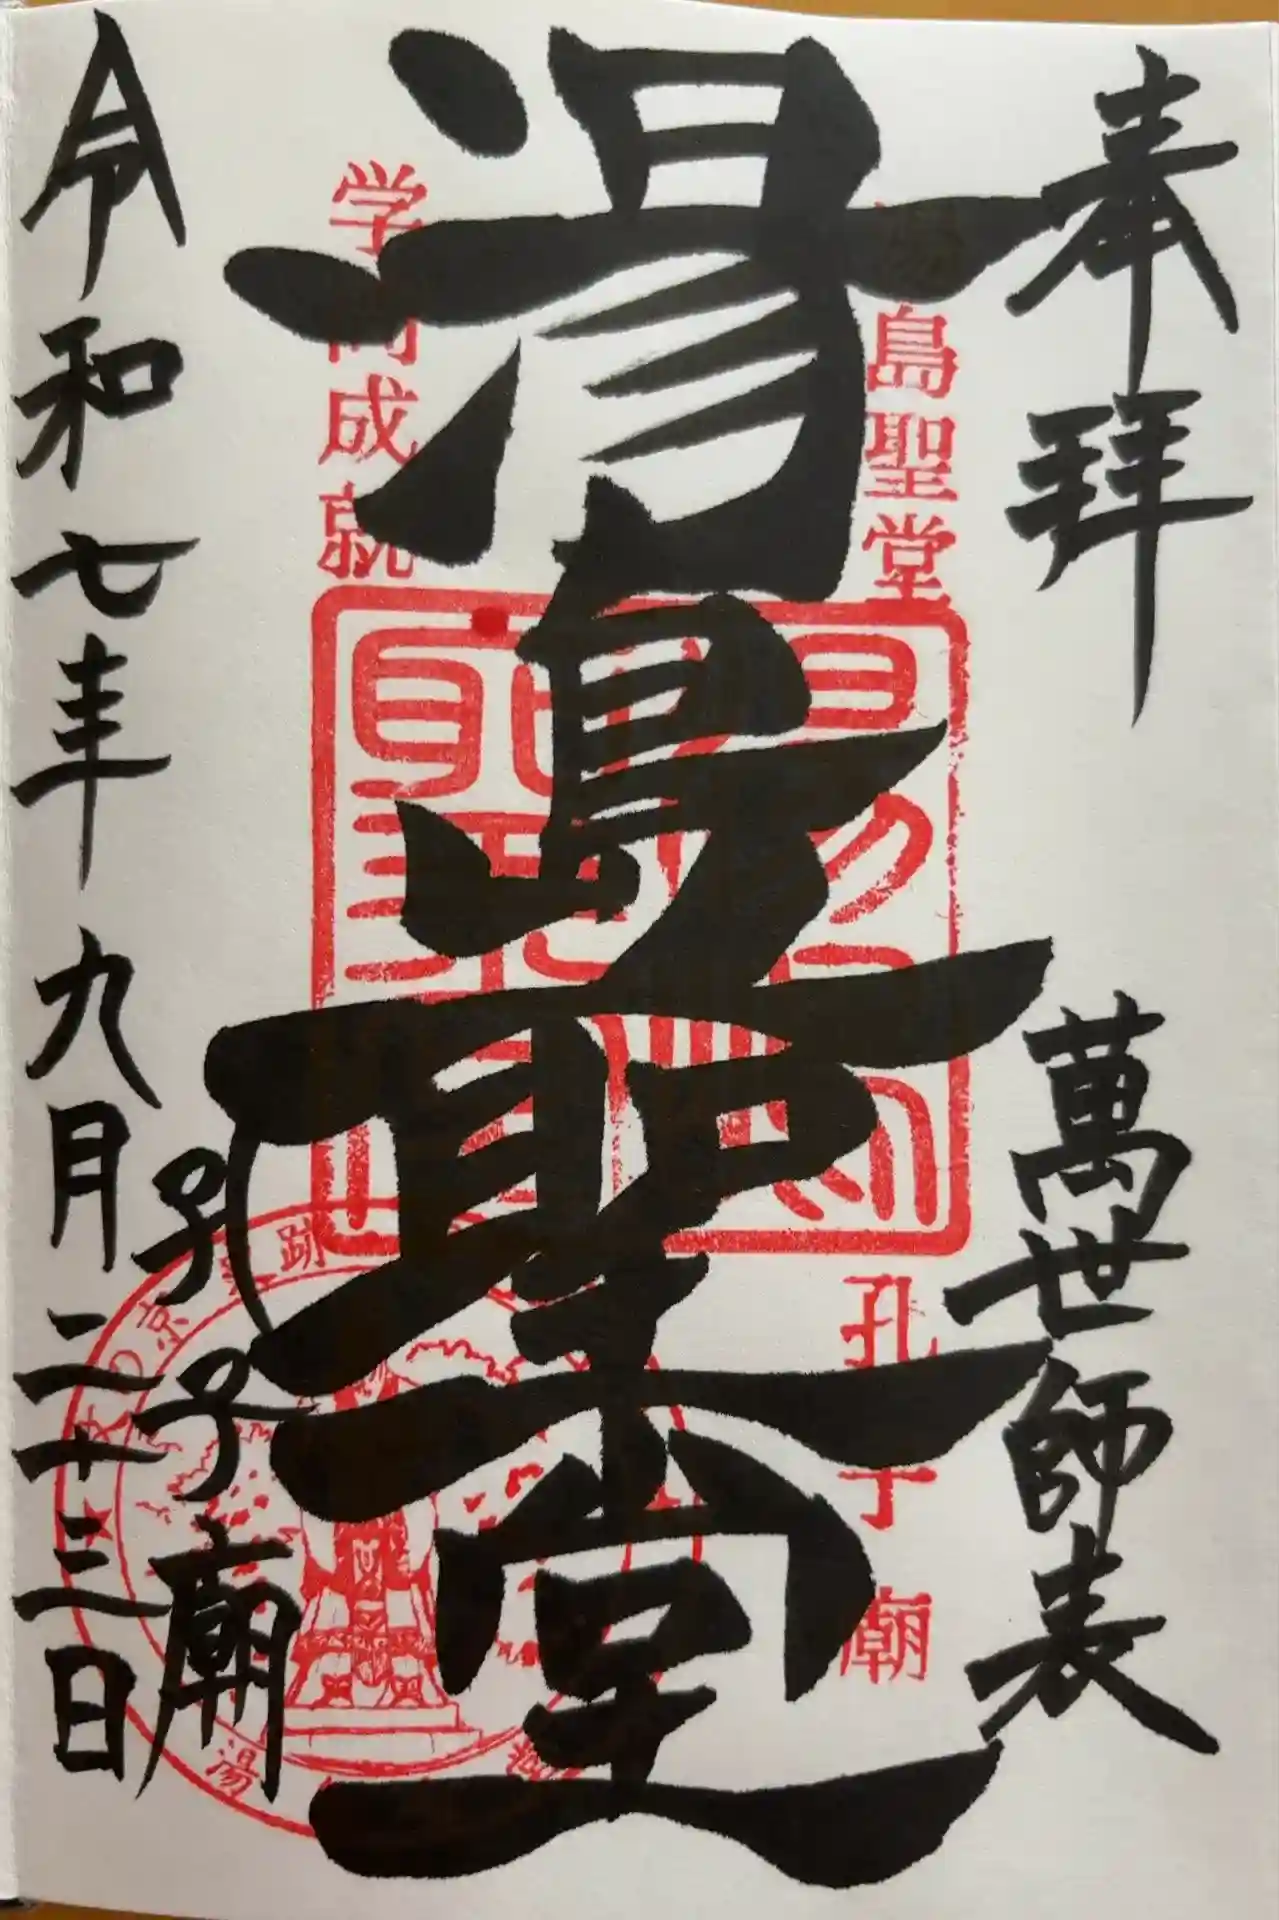 奉拝
萬世師表
島聖堂
孔子廟
湯島聖堂
学問成就
孔子廟
令和七年九月二十三日
跡
京
湯